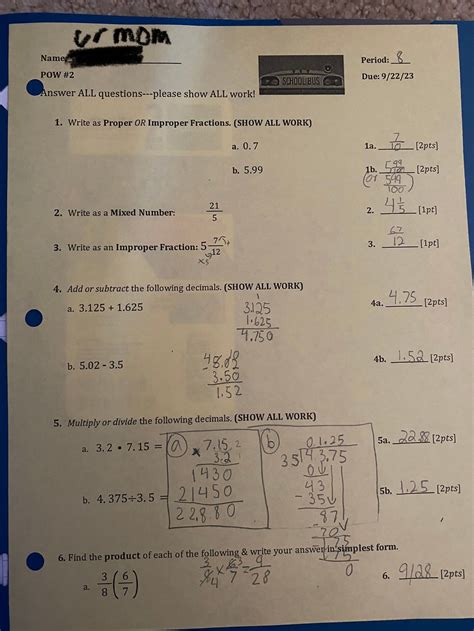 ur mom
Name
Period: 8
POW #2
SCHOOL BUS
Due: 9/22/23
Answer ALL questions---please show ALL work!
1. Write as Proper OR Improper Fractions. (SHOW ALL WORK)
a. 0.7
1a. 7/10 [2pts]
b. 5.99
1b. 599/100 [2pts]
(or 599/100)
2. Write as a Mixed Number: 21/5
2. 4 1/5 [1pt]
3. Write as an Improper Fraction: 5 7/12
3. 67/12 [1pt]
4. Add or subtract the following decimals. (SHOW ALL WORK)
a. 3.125 + 1.625
1
3.125
1.625
4.750
4a. 4.75 [2pts]
b. 5.02 - 3.5
- 3.50
1.52
4b. 1.52 [2pts]
5. Multiply or divide the following decimals. (SHOW ALL WORK)
a. 3.2 • 7.15 =
a
× 7.15
3.2
1430
21450
22880
5a. 22.88 [2pts]
b. 4.375÷3.5 =
b
01.25
35 43.75
0
43
- 35
87
- 70
175
- 175
0
5b. 1.25 [2pts]
6. Find the product of each of the following & write your answer in simplest form.
a. 3/8 (6/7)
= 9/28
6. 9/28 [2pts]